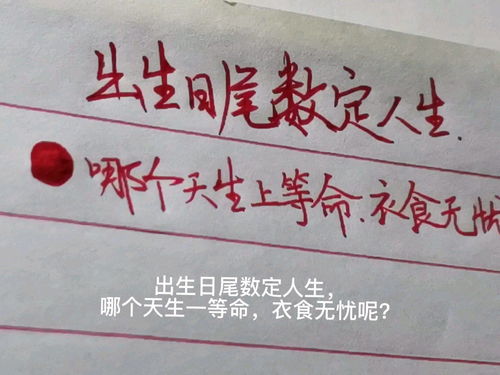 出生日尾数定人生.
哪个天生上等命.衣食无忧
出生日尾数定人生，
哪个天生一等命，衣食无忧呢？